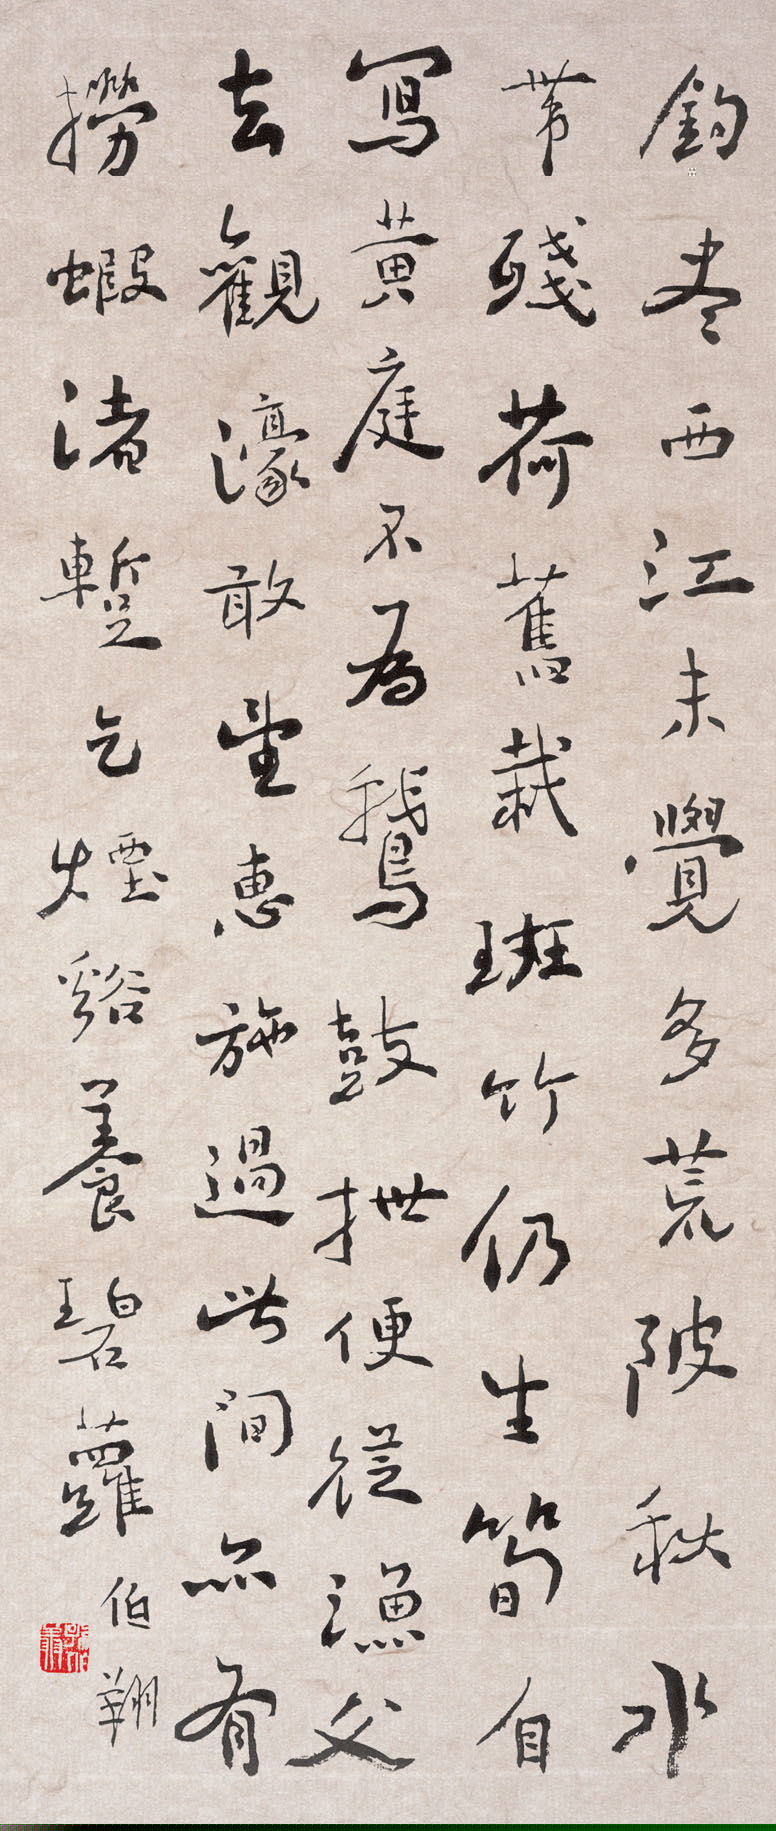 鈞盡西江未覺多荒陂秋水
帶殘荷舊栽斑竹仍生筍自
寫黃庭不為鵝鼓枻便從漁父
去觀濠敢望惠施過此間亦有
撈蝦渚暫乞煙谿養碧蘿
伯翔